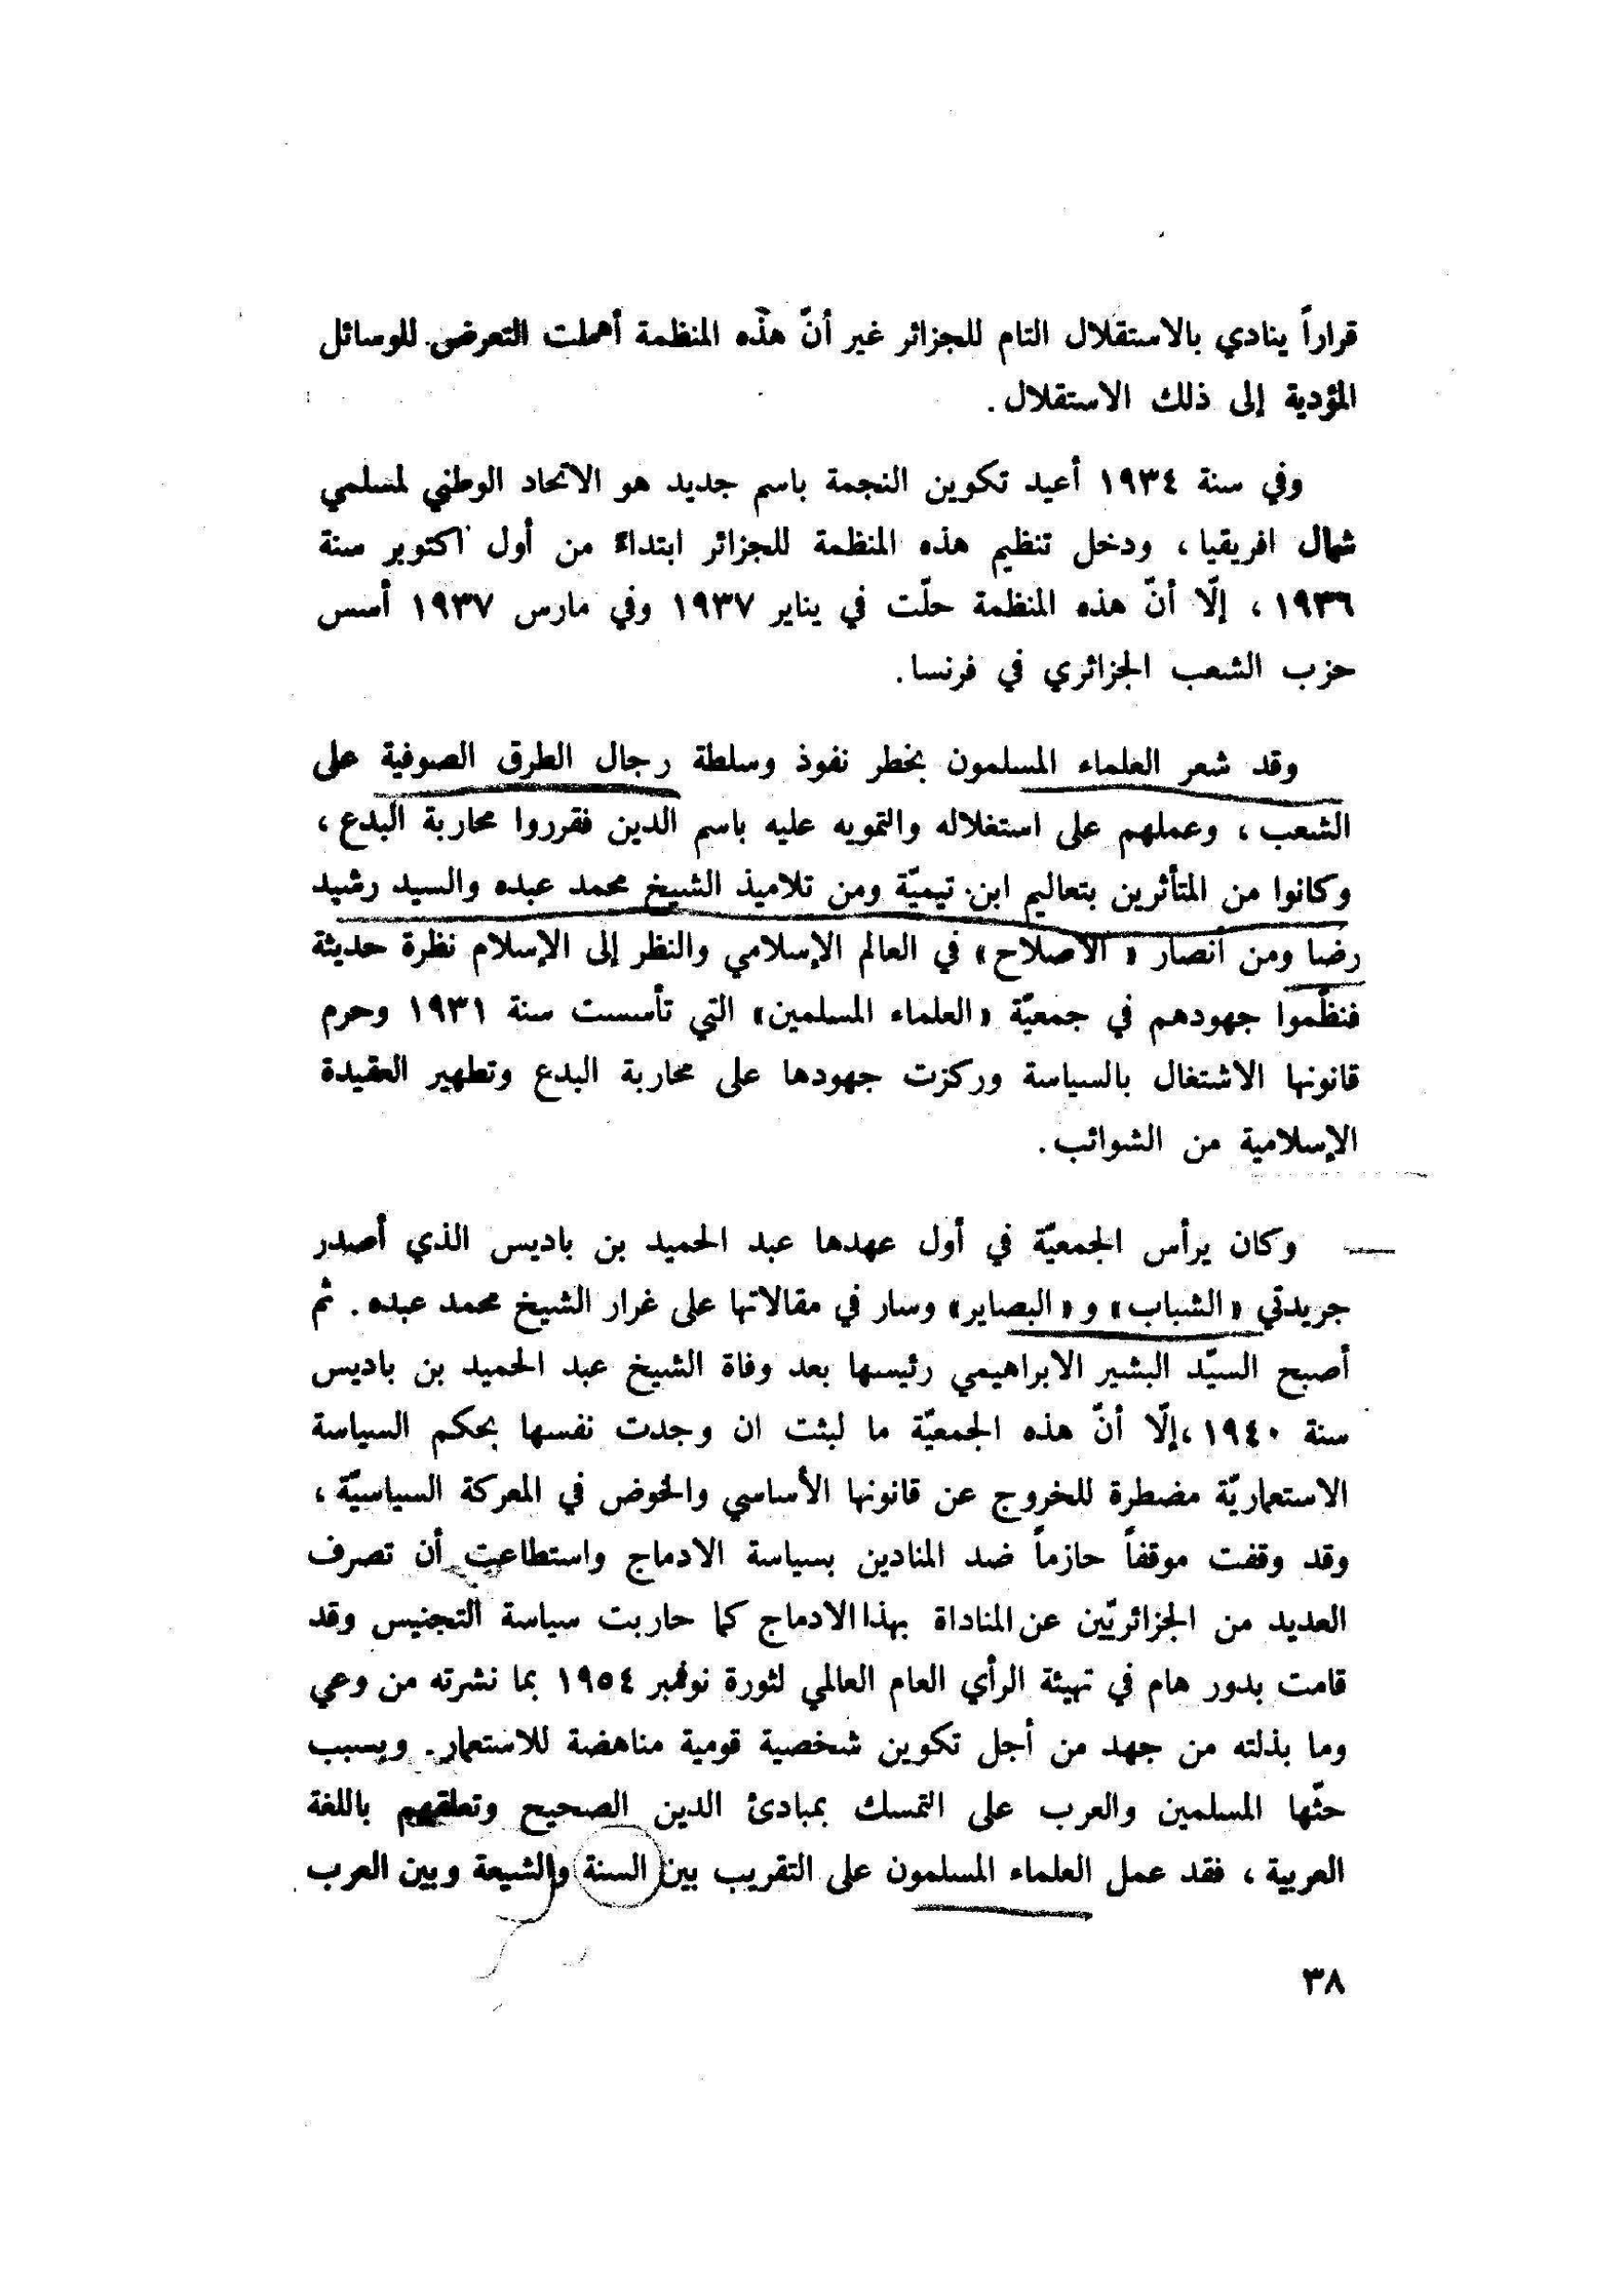 قراراً ينادي بالاستقلال التام للجزائر غير أنّ هذه المنظمة أهملت التعرض للوسائل
المؤدية إلى ذلك الاستقلال .
وفي سنة ١٩٣٤ أعيد تكوين النجمة باسم جديد هو الاتحاد الوطني لمسلمي
شمال افريقيا ، ودخل تنظيم هذه المنظمة للجزائر ابتداءً من أول اكتوبر سنة
١٩٣٦ ، إلّا أنّ هذه المنظمة حلّت في يناير ١٩٣٧ وفي مارس ١٩٣٧ أسس
حزب الشعب الجزائري في فرنسا .
وقد شعر العلماء المسلمون بخطر نفوذ وسلطة رجال الطرق الصوفية على
الشعب ، وعملهم على استغلاله والتمويه عليه باسم الدين فقرروا محاربة البدع ،
وكانوا من المتأثرين بتعاليم ابن تيميّة ومن تلاميذ الشيخ محمد عبده والسيد رشيد
رضا ومن أنصار « الاصلاح » في العالم الإسلامي والنظر إلى الإسلام نظرة حديثة
فنظّموا جهودهم في جمعيّة «العلماء المسلمين» التي تأسست سنة ١٩٣١ وحرم
قانونها الاشتغال بالسياسة وركزت جهودها على محاربة البدع وتطهير العقيدة
الإسلامية من الشوائب .
وكان يرأس الجمعيّة في أول عهدها عبد الحميد بن باديس الذي أصدر
جريدتي « الشباب » و « البصاير » وسار في مقالاتها على غرار الشيخ محمد عبده . ثم
أصبح السيّد البشير الابراهيمي رئيسها بعد وفاة الشيخ عبد الحميد بن باديس
سنة ١٩٤٠ ،إلّا أنّ هذه الجمعيّة ما لبثت ان وجدت نفسها بحكم السياسة
الاستعماريّة مضطرة للخروج عن قانونها الأساسي والخوض في المعركة السياسيّة ،
وقد وقفت موقفاً حازماً ضد المنادين بسياسة الادماج واستطاعت أن تصرف
العديد من الجزائريّين عن المناداة بهذا الادماج كما حاربت سياسة التجنيس وقد
قامت بدور هام في تهيئة الرأي العام العالمي لثورة نوفمبر ١٩٥٤ بما نشرته من وعي
وما بذلته من جهد من أجل تكوين شخصية قومية مناهضة للاستعمار . وبسبب
حثّها المسلمين والعرب على التمسك بمبادئ الدين الصحيح وتعلقهم باللغة
العربية ، فقد عمل العلماء المسلمون على التقريب بين السنة والشيعة وبين العرب
٣٨